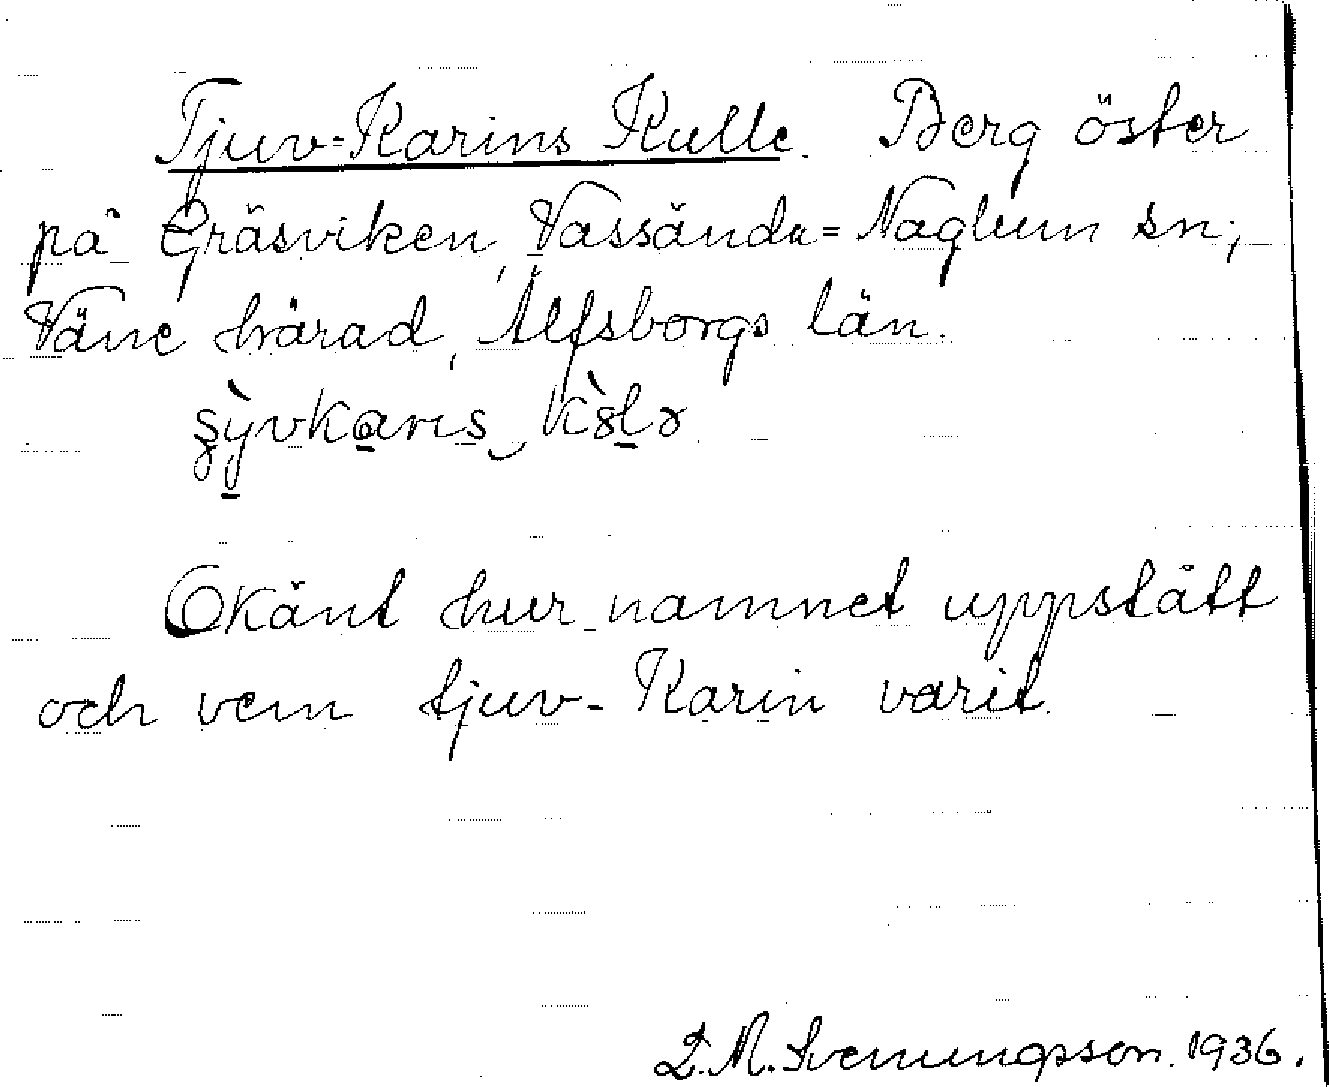 Tjuv-Karins Kulle. Berg öster
på Gräsviken, Vassända-Naglum sn;
Väne härad, Älfsborgs län.
Okänt hur namnet uppstått
och vem tjuv-Karin varit.
Svenungsson. 1936.